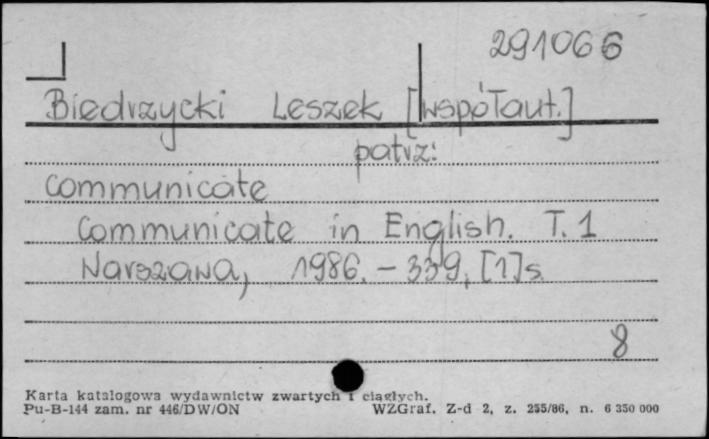 291066
Biedrzycki Leszek [współaut.]
patrz:
Communicate
Communicate in English. T. 1
Warszawa, 1986. – 339, [1] s.
8
Karta katalogowa wydawnictw zwartych i ciągłych.
Pu-B-144 zam. nr 446/DW/ON WZGraf. Z-d 2, z. 255/86, n. 6 350 000